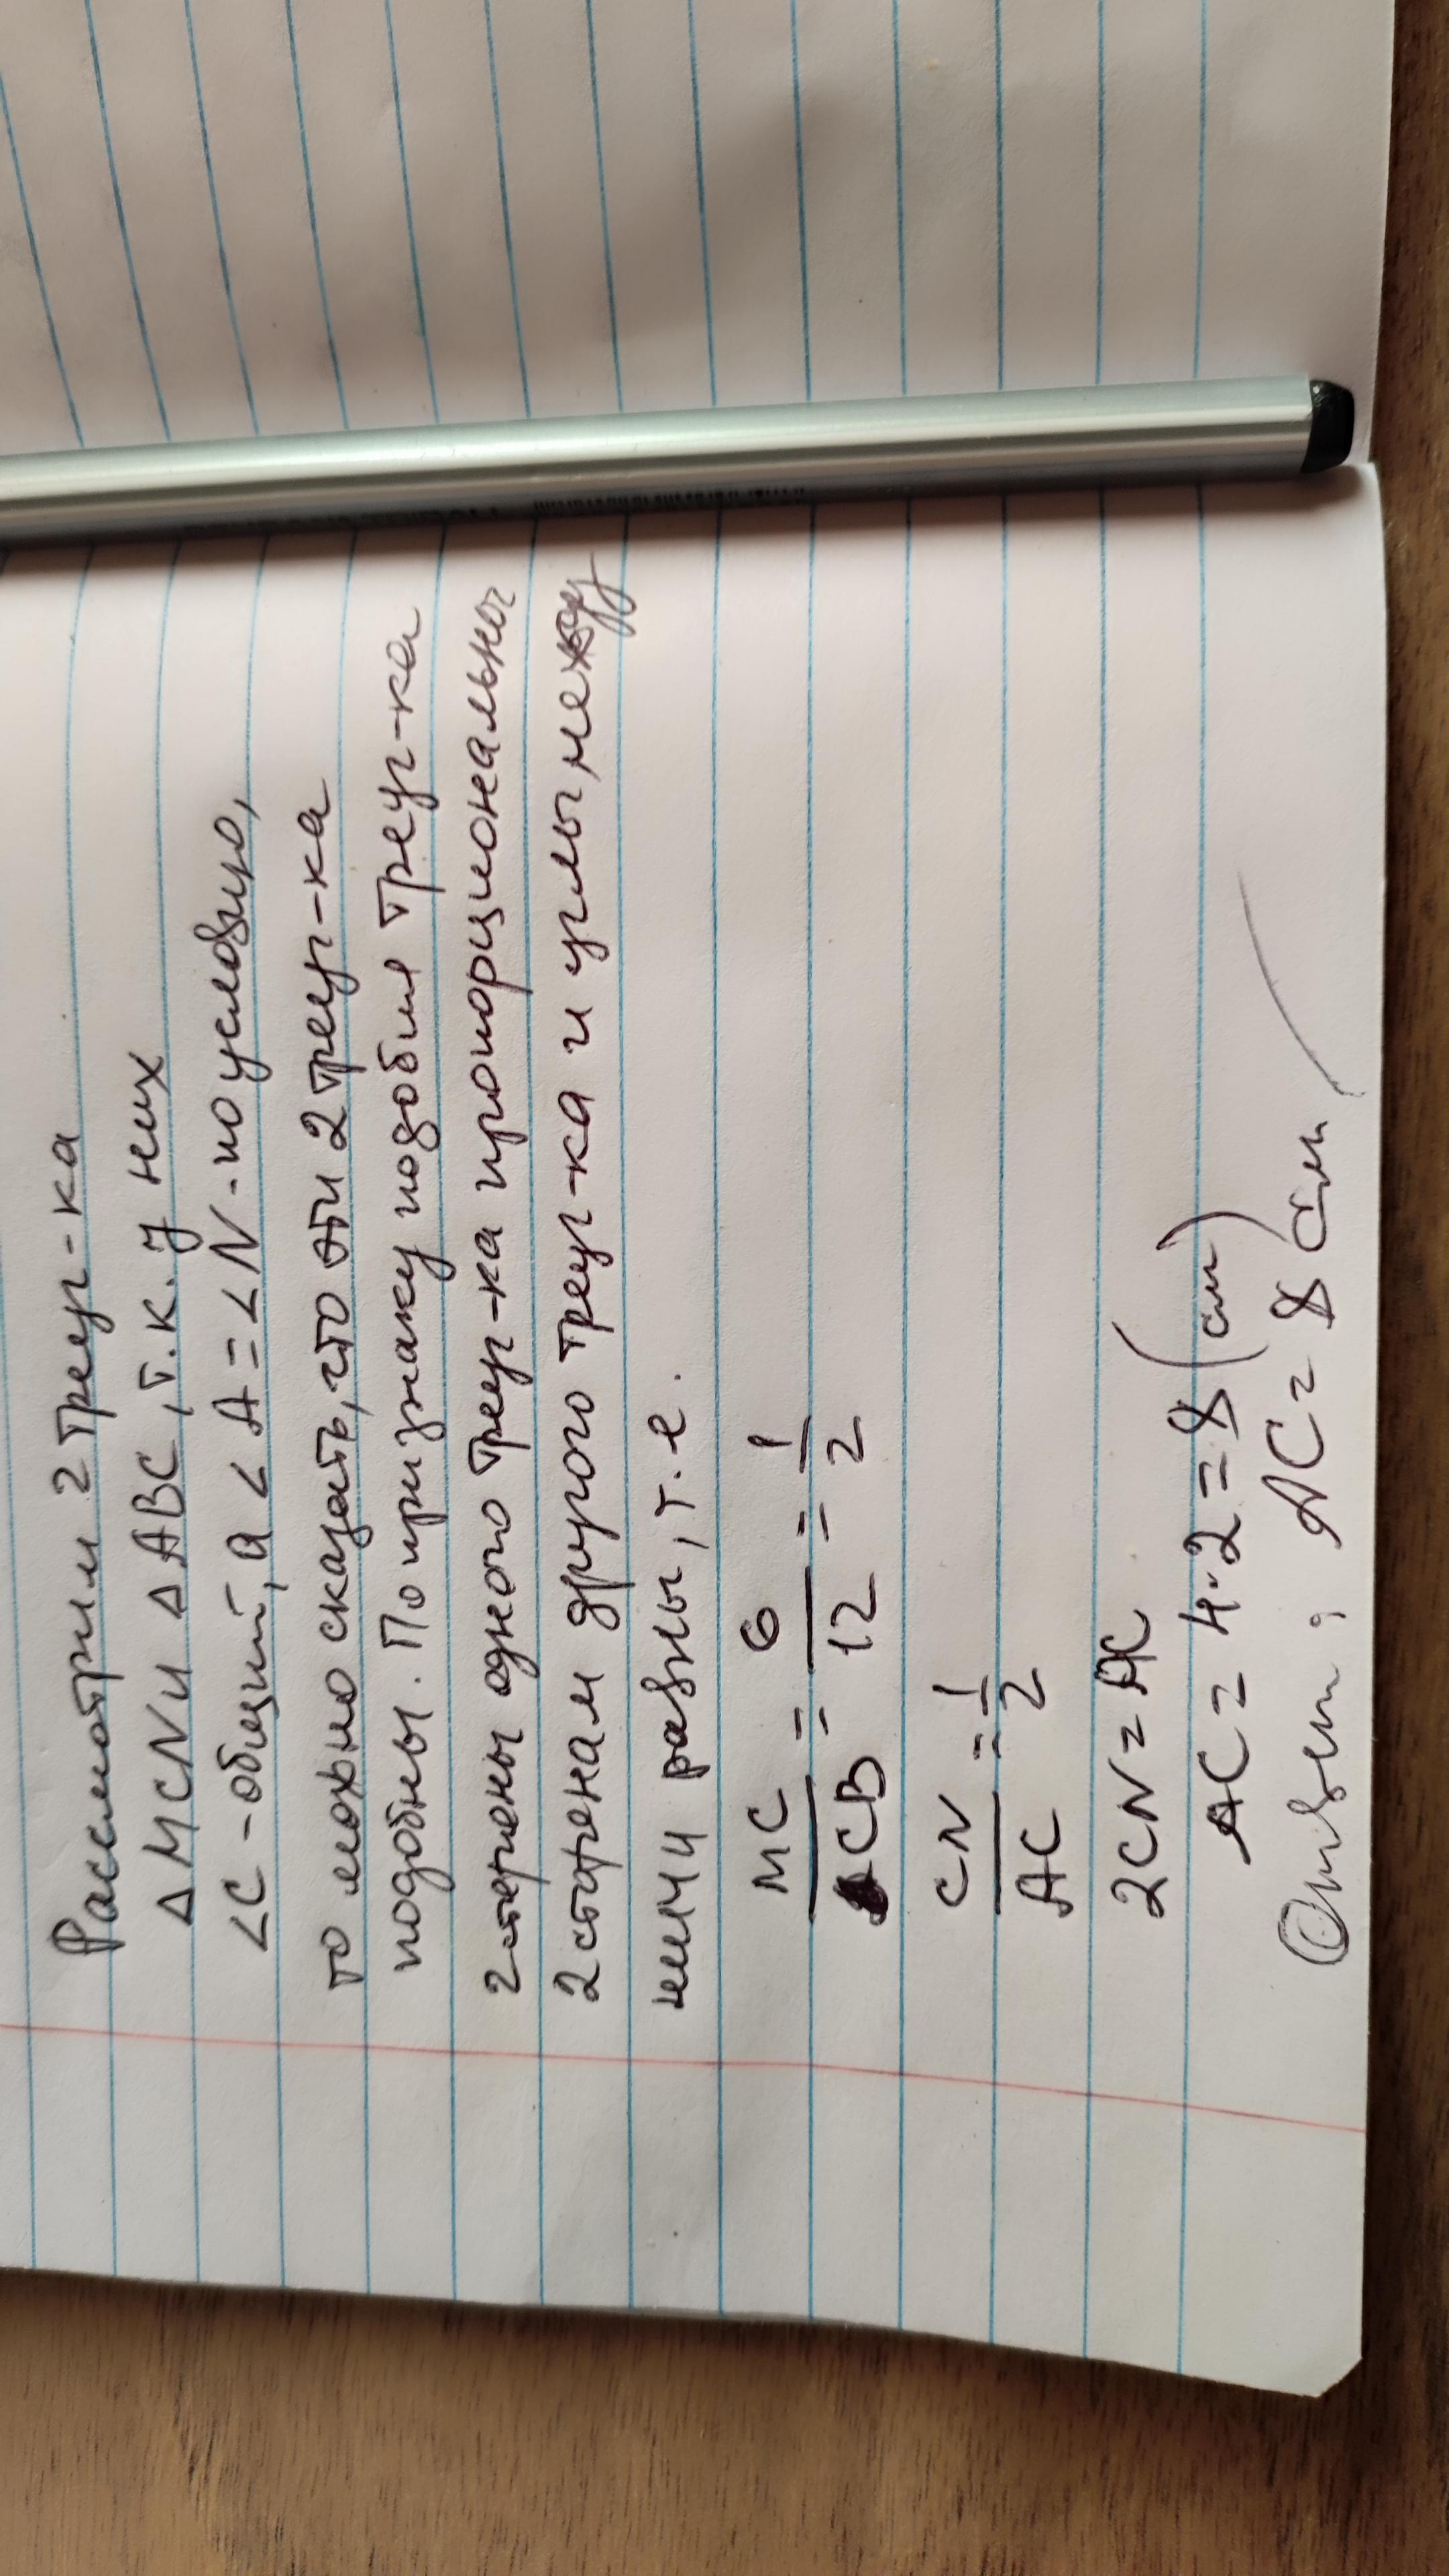 Рассмотрим 2 треуг-ка
△MCN и △ABC, т.к. у них
<C - общий, а <A = <N - по условию,
то можно сказать, что эти 2 треуг-ка
подобны. По признаку подобия треуг-ка
2 стороны одного треуг-ка пропорциональны
2 сторонам другого треуг-ка и углы между
ними равны, т.е.
MC/CB = 6/12 = 1/2
CN/AC = 1/2
2CN = AC
AC = 4·2 = 8 (см)
Ответ: AC = 8 см